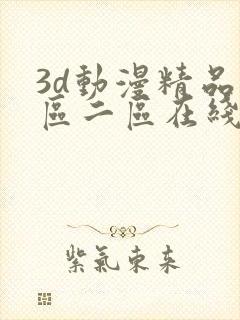 3d動漫精品
區二區在綫
紫氣東來